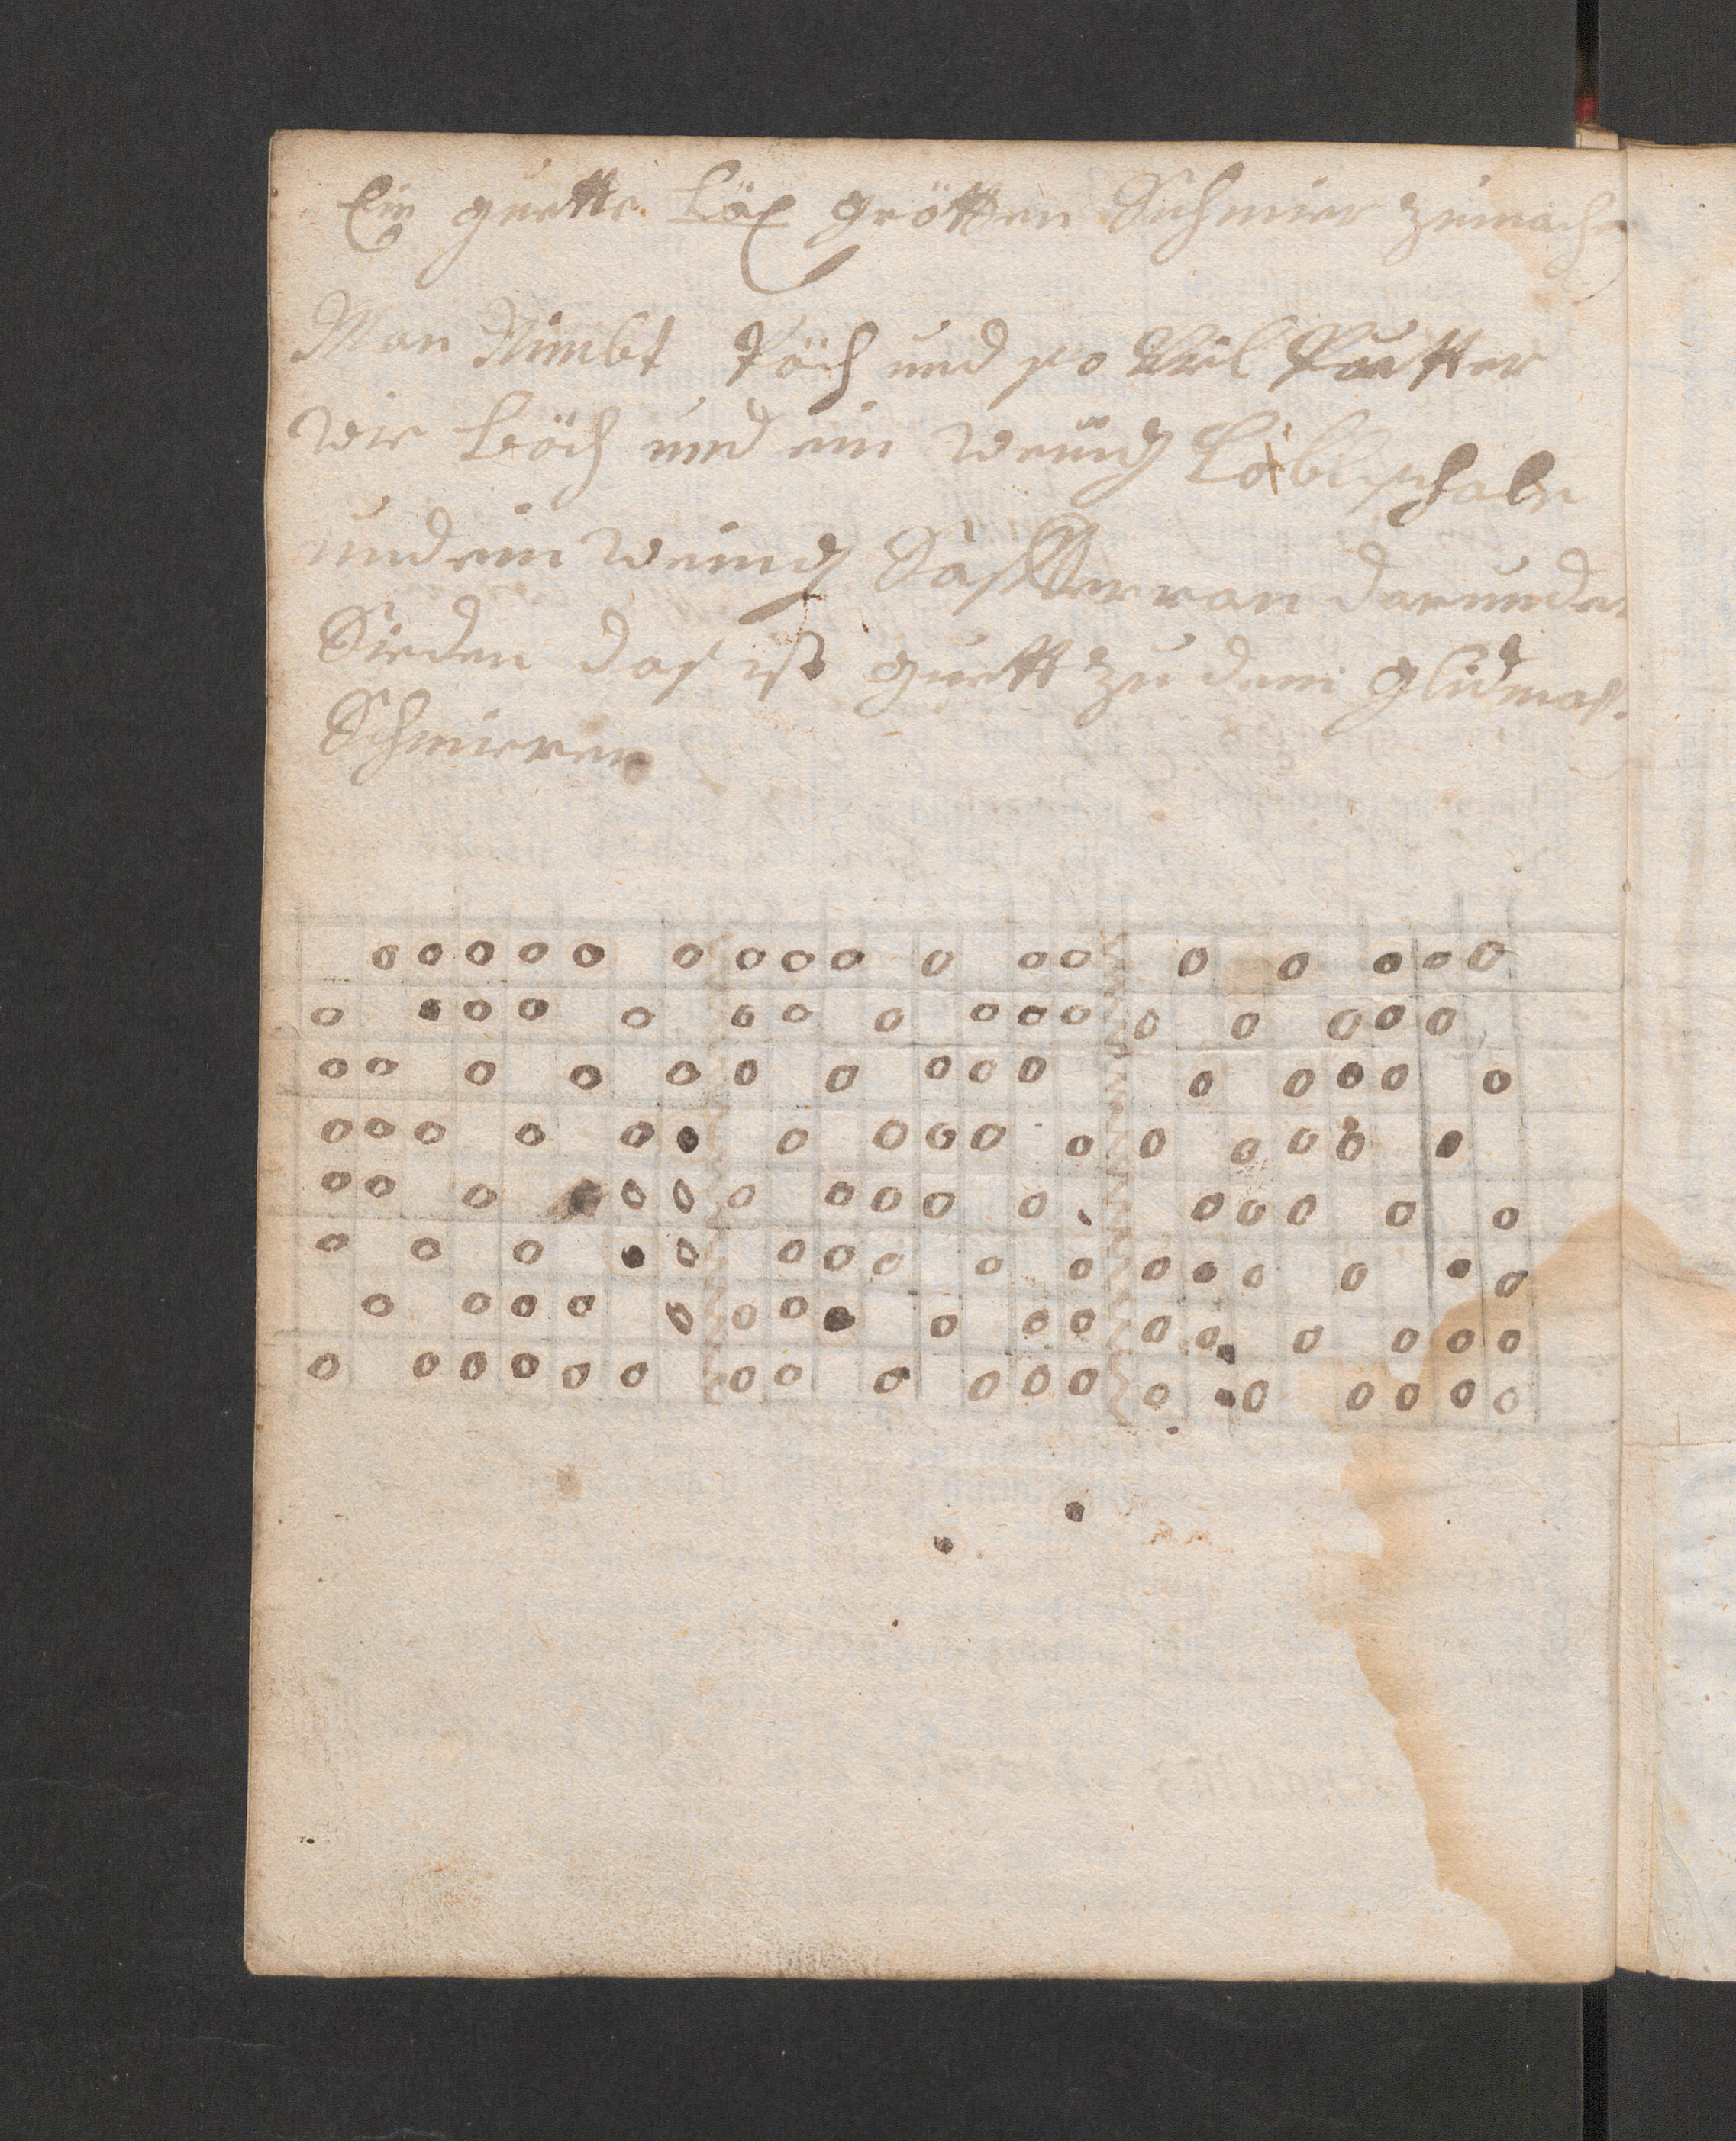 Ein guette Läx grötten Schmier zumache
Man Nimbt Pöch und so Viel Putter
wie Böch und ein wenig
und ein wenig Safferran darunder
Sieden das ist guett zu dem glidmas
Schmieren